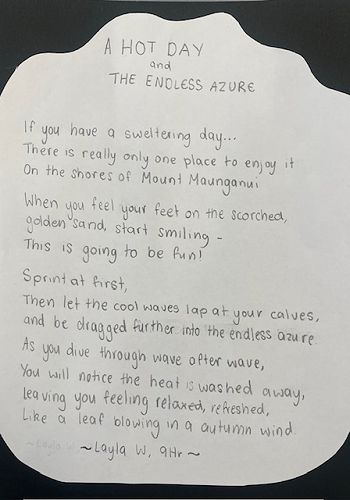 A HOT DAY
and
THE ENDLESS AZURE
If you have a sweltering day...
There is really only one place to enjoy it
On the shores of Mount Maunganui
When you feel your feet on the scorched,
golden sand, start smiling -
This is going to be fun!
Sprint at first,
Then let the cool waves lap at your calves,
and be dragged further into the endless azure
As you dive through wave after wave,
You will notice the heat is washed away,
leaving you feeling relaxed, refreshed,
Like a leaf blowing in a autumn wind.
~Layla W, 9Hr~